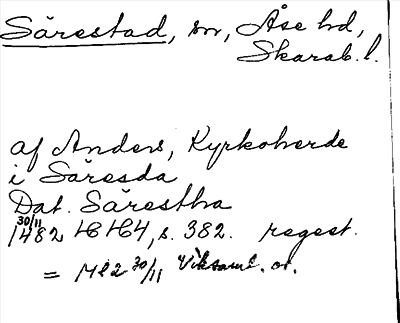 Särestad, sn, Åse hd,
Skarab. l.
af Anders, Kyrkoherde
i Säresda
Dat. Särestha
30/11
1482 HH4, s. 382. regest.
= 1482 30/11 Viksaml. or.